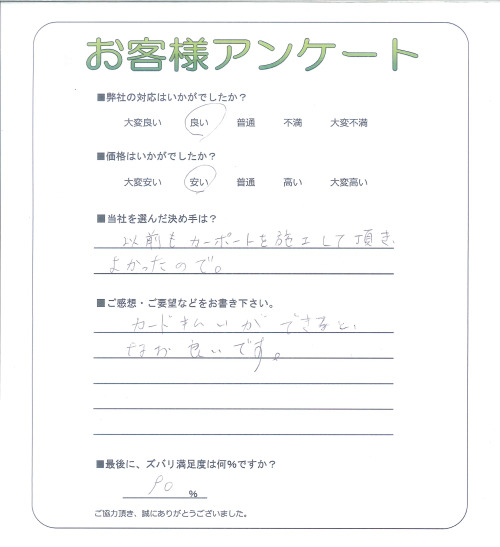 お客様アンケート
■弊社の対応はいかがでしたか?
大変良い 良い 普通 不満 大変不満
■価格はいかがでしたか?
大変安い 安い 普通 高い 大変高い
■当社を選んだ決め手は?
以前もカーポートを施工して頂き、
よかったので。
■ご感想・ご要望などをお書き下さい。
カード払いができると、
なお良いです。
■最後に、ズバリ満足度は何%ですか?
90 %
ご協力頂き、誠にありがとうございました。